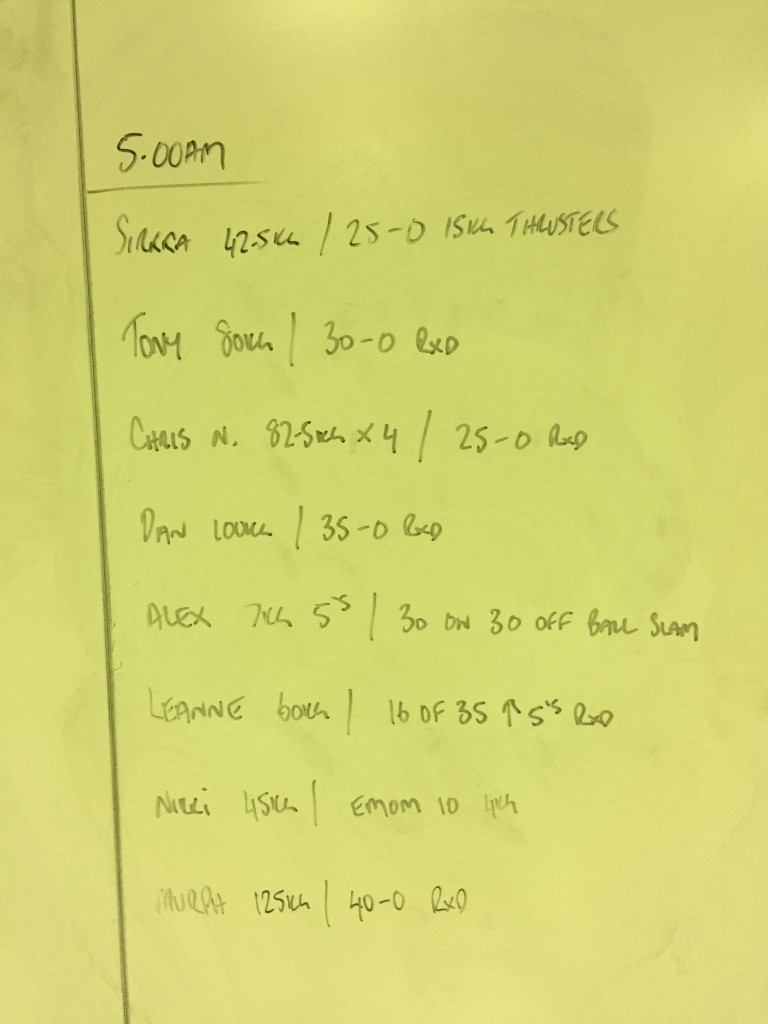 5.00AM
SIRKKA 42.5KG / 25-0 15KG THRUSTERS
TONY 80KG / 30-0 RXD
CHRIS N. 82.5KG X 4 / 25-0 RXD
DAN 100KG / 35-0 RXD
ALEX 7KG 5'S / 30 ON 30 OFF BALL SLAM
LEANNE 60KG / 16 OF 35 ↑ 5'S RXD
NIKKI 45KG / EMOM 10 4KG
MURPH 125KG / 40-0 RXD